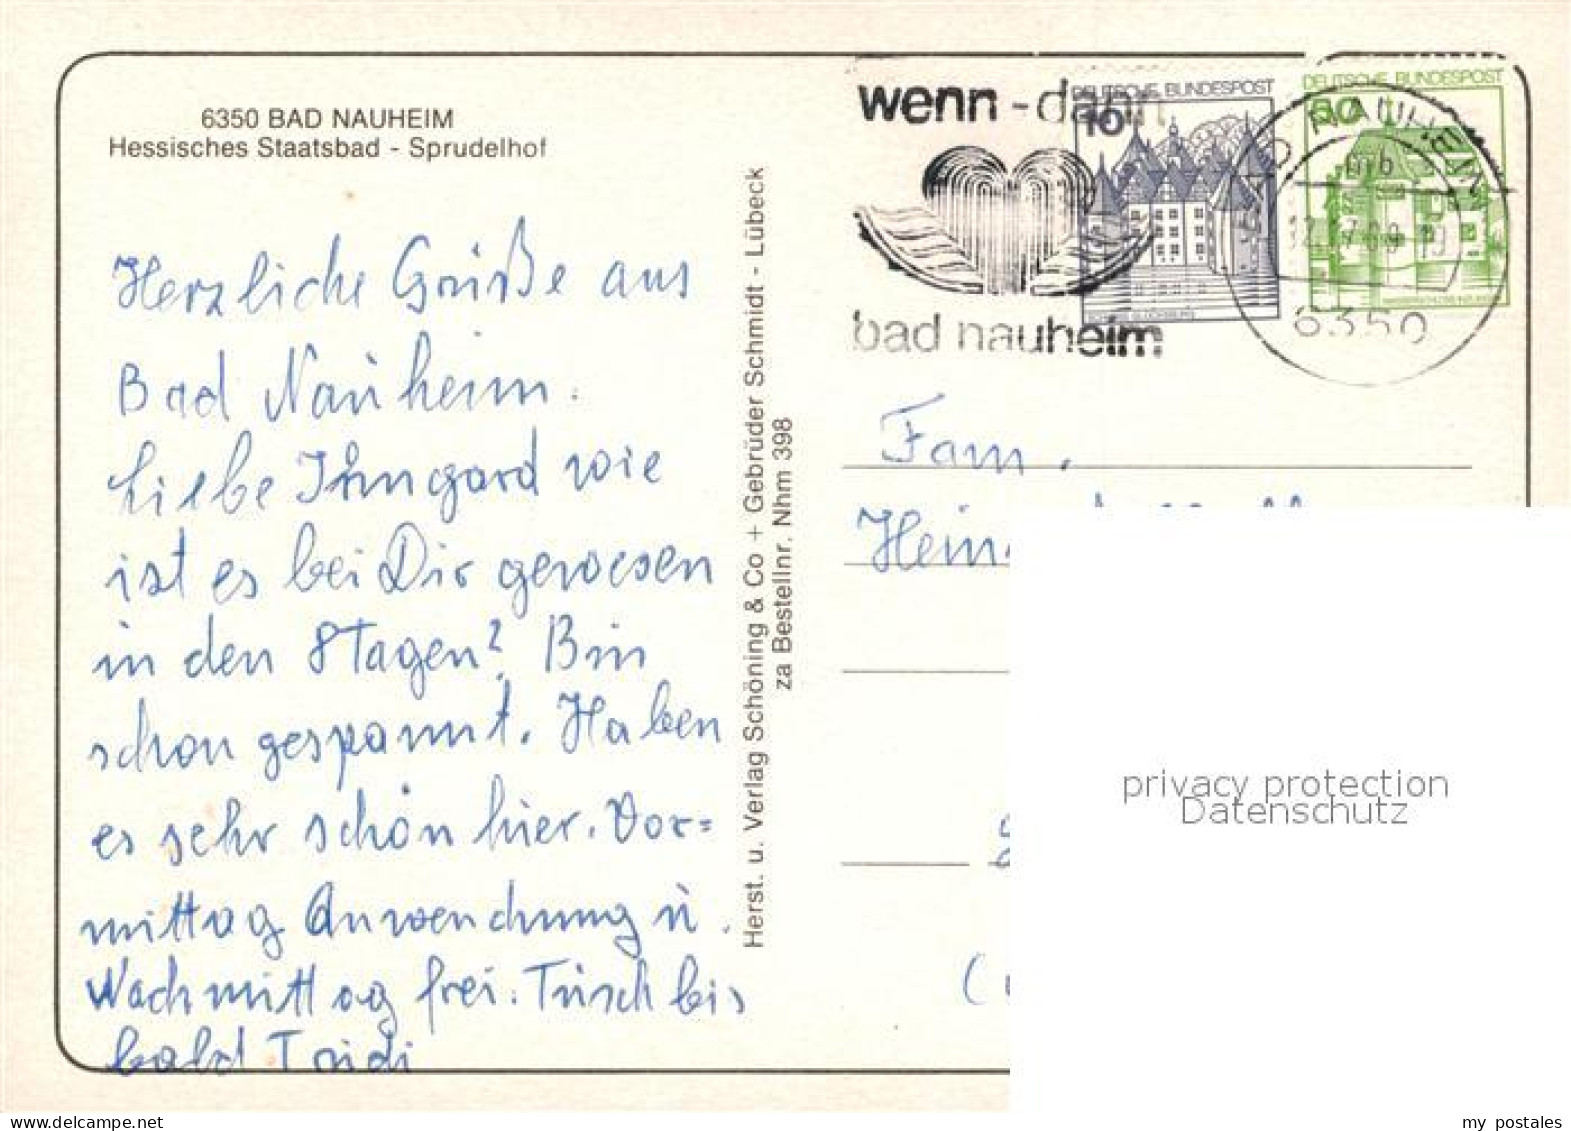 6350 BAD NAUHEIM
Hessisches Staatsbad - Sprudelhof
Herzliche Grüße aus
Bad Nauheim.
Liebe Irmgard wie
ist es bei Dir gewesen
in den 8 Tagen? Bin
schon gespannt. Haben
es sehr schön hier. Vor=
mittag Anwendung u.
Nachmittag frei. Tüsch bis
bald Trudi
Herst. u. Verlag Schöning & Co + Gebrüder Schmidt - Lübeck
za Bestellnr. Nhm 398
wenn - dann
bad nauheim
DEUTSCHE BUNDESPOST
10
DEUTSCHE BUNDESPOST
50
BAD NAUHEIM
mb
6350
Fam.
privacy protection
Datenschutz
my postales